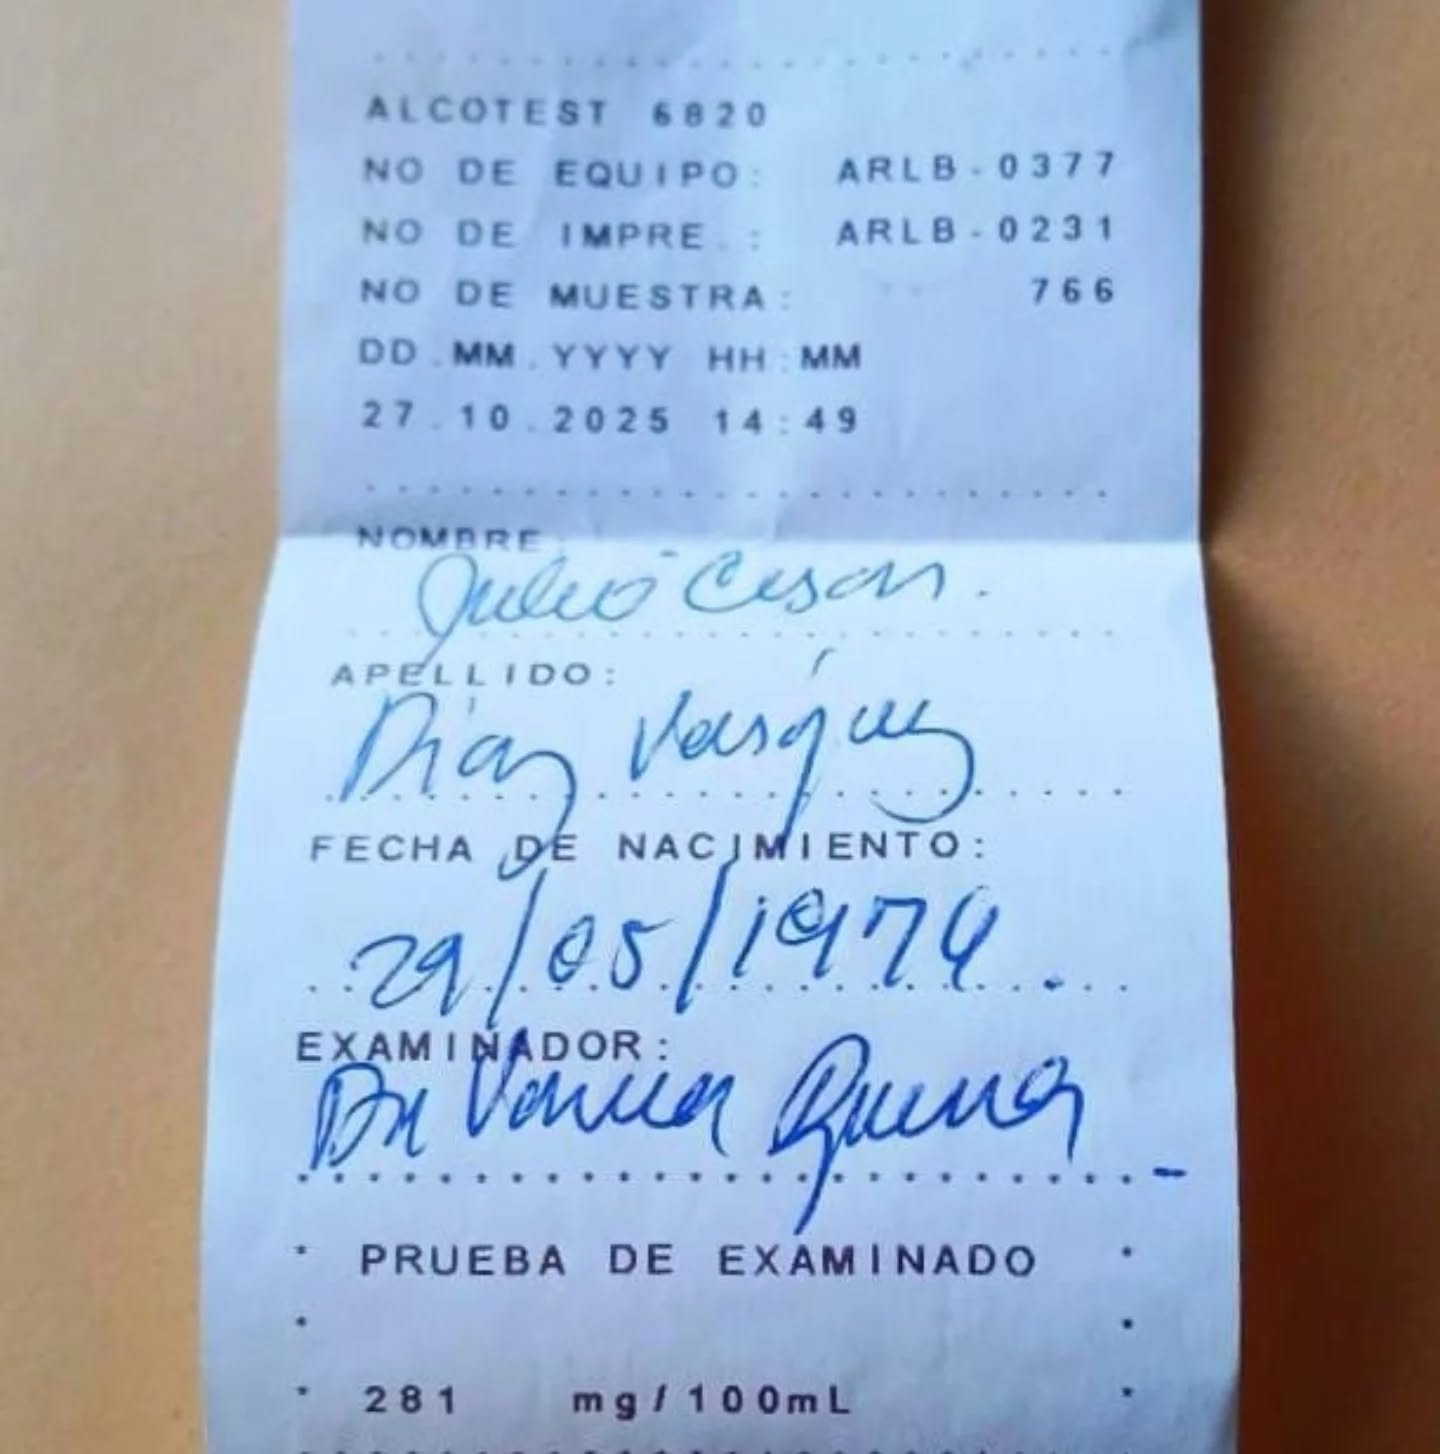 ALCOTEST 6820
NO DE EQUIPO: ARLB-0377
NO DE IMPRE.: ARLB-0231
NO DE MUESTRA: 766
DD.MM.YYYY HH:MM
27.10.2025 14:49
NOMBRE:
Julio Cesar.
APELLIDO:
Díaz Vásquez
FECHA DE NACIMIENTO:
29/05/1974.
EXAMINADOR:
PRUEBA DE EXAMINADO
281 mg/100mL